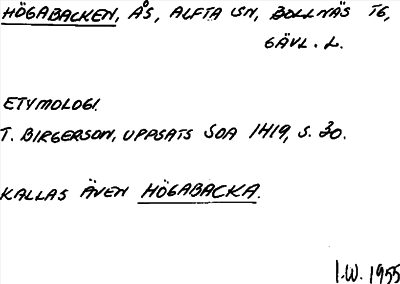 HÖGABACKEN, ÅS, ALFTA SN, BOLLNÄS TG,
GÄVL. L.
ETYMOLOGI.
T. BIRGERSON, UPPSATS SOA 1419, S. 30.
KALLAS ÄVEN HÖGABACKA.
I.W. 1955